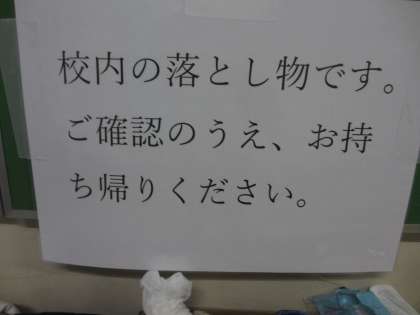 校内の落とし物です。
ご確認のうえ、お持
ち帰りください。